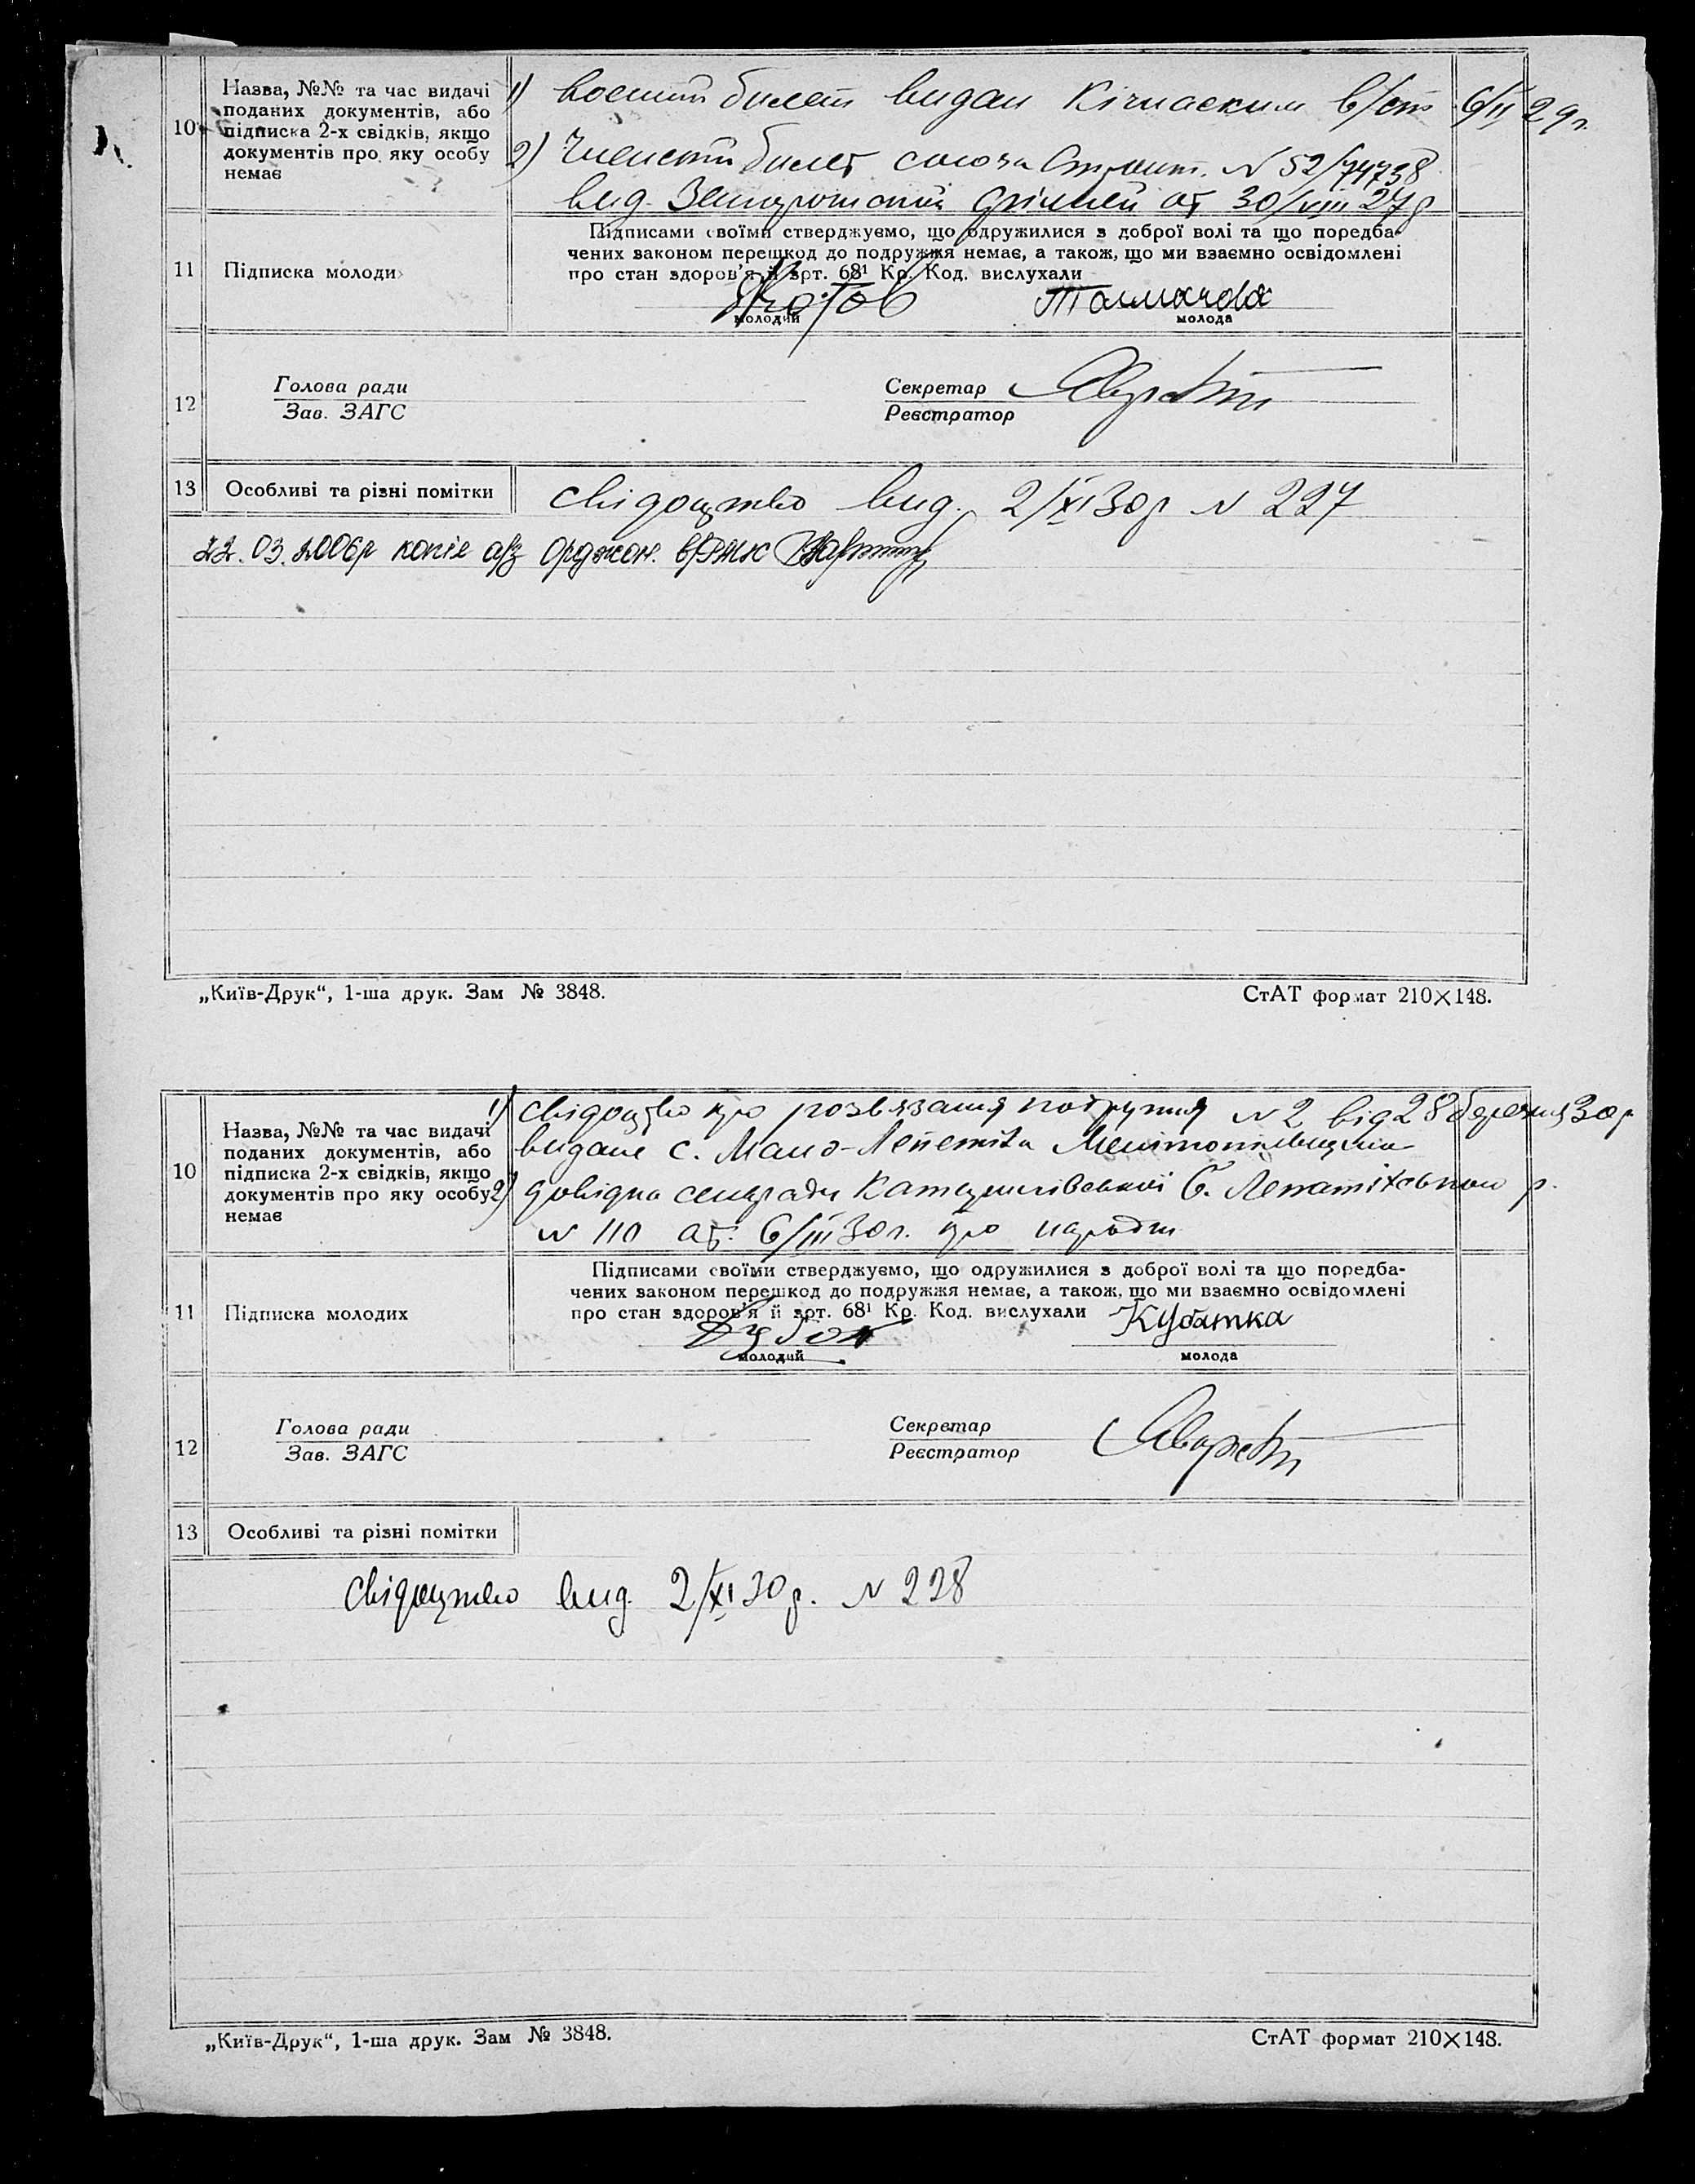 10
Назва, №№ та час видачі
поданих документів, або
підписка 2-х свідків, якщо
документів про яку особу
немає
1) воений билет видан Кічкаским в/ст 6/II 29 г.
2) Членский билет союза Строит. N 52/74738
вид. Запорожской філией от 30/VIII 27 р
11
Підписка молоди
Підписами своїми стверджуємо, що одружилися з доброї волі та що передба-
чених законом перешкод до подружжя немає, а також, що ми взаємно освідомлені
про стан здоров'я й арт. 68¹ Кр. Код. вислухали
молодий
Толмачова
молода
12
Голова ради
Зав. ЗАГС
Секретар
Реєстратор
13
Особливі та різні помітки
свідоцтво вид. 2/XI 30 р N 227
22.03.2006р копія а/з Орджон. в/РАЦС
„Київ-Друк“, 1-ша друк. Зам № 3848.
СтАТ формат 210×148.
10
Назва, №№ та час видачі
поданих документів, або
підписка 2-х свідків, якщо
документів про яку особу
немає
1) свідоцтво про розвязання подружжя N 2 від 28 березня 30 р
видане с. Мало-Лепетиха Мелітопільщина
2) довідка сельради Катеринівської Б. Лепатіхською р.
N 110 от. 6/III 30 г. про народж
11
Підписка молодих
Підписами своїми стверджуємо, що одружилися з доброї волі та що передба-
чених законом перешкод до подружжя немає, а також, що ми взаємно освідомлені
про стан здоров'я й арт. 68¹ Кр. Код. вислухали
молодий
молода
12
Голова ради
Зав. ЗАГС
Секретар
Реєстратор
13
Особливі та різні помітки
свідоцтво вид. 2/XI 30 р. N 228
„Київ-Друк“, 1-ша друк. Зам № 3848.
СтАТ формат 210×148.